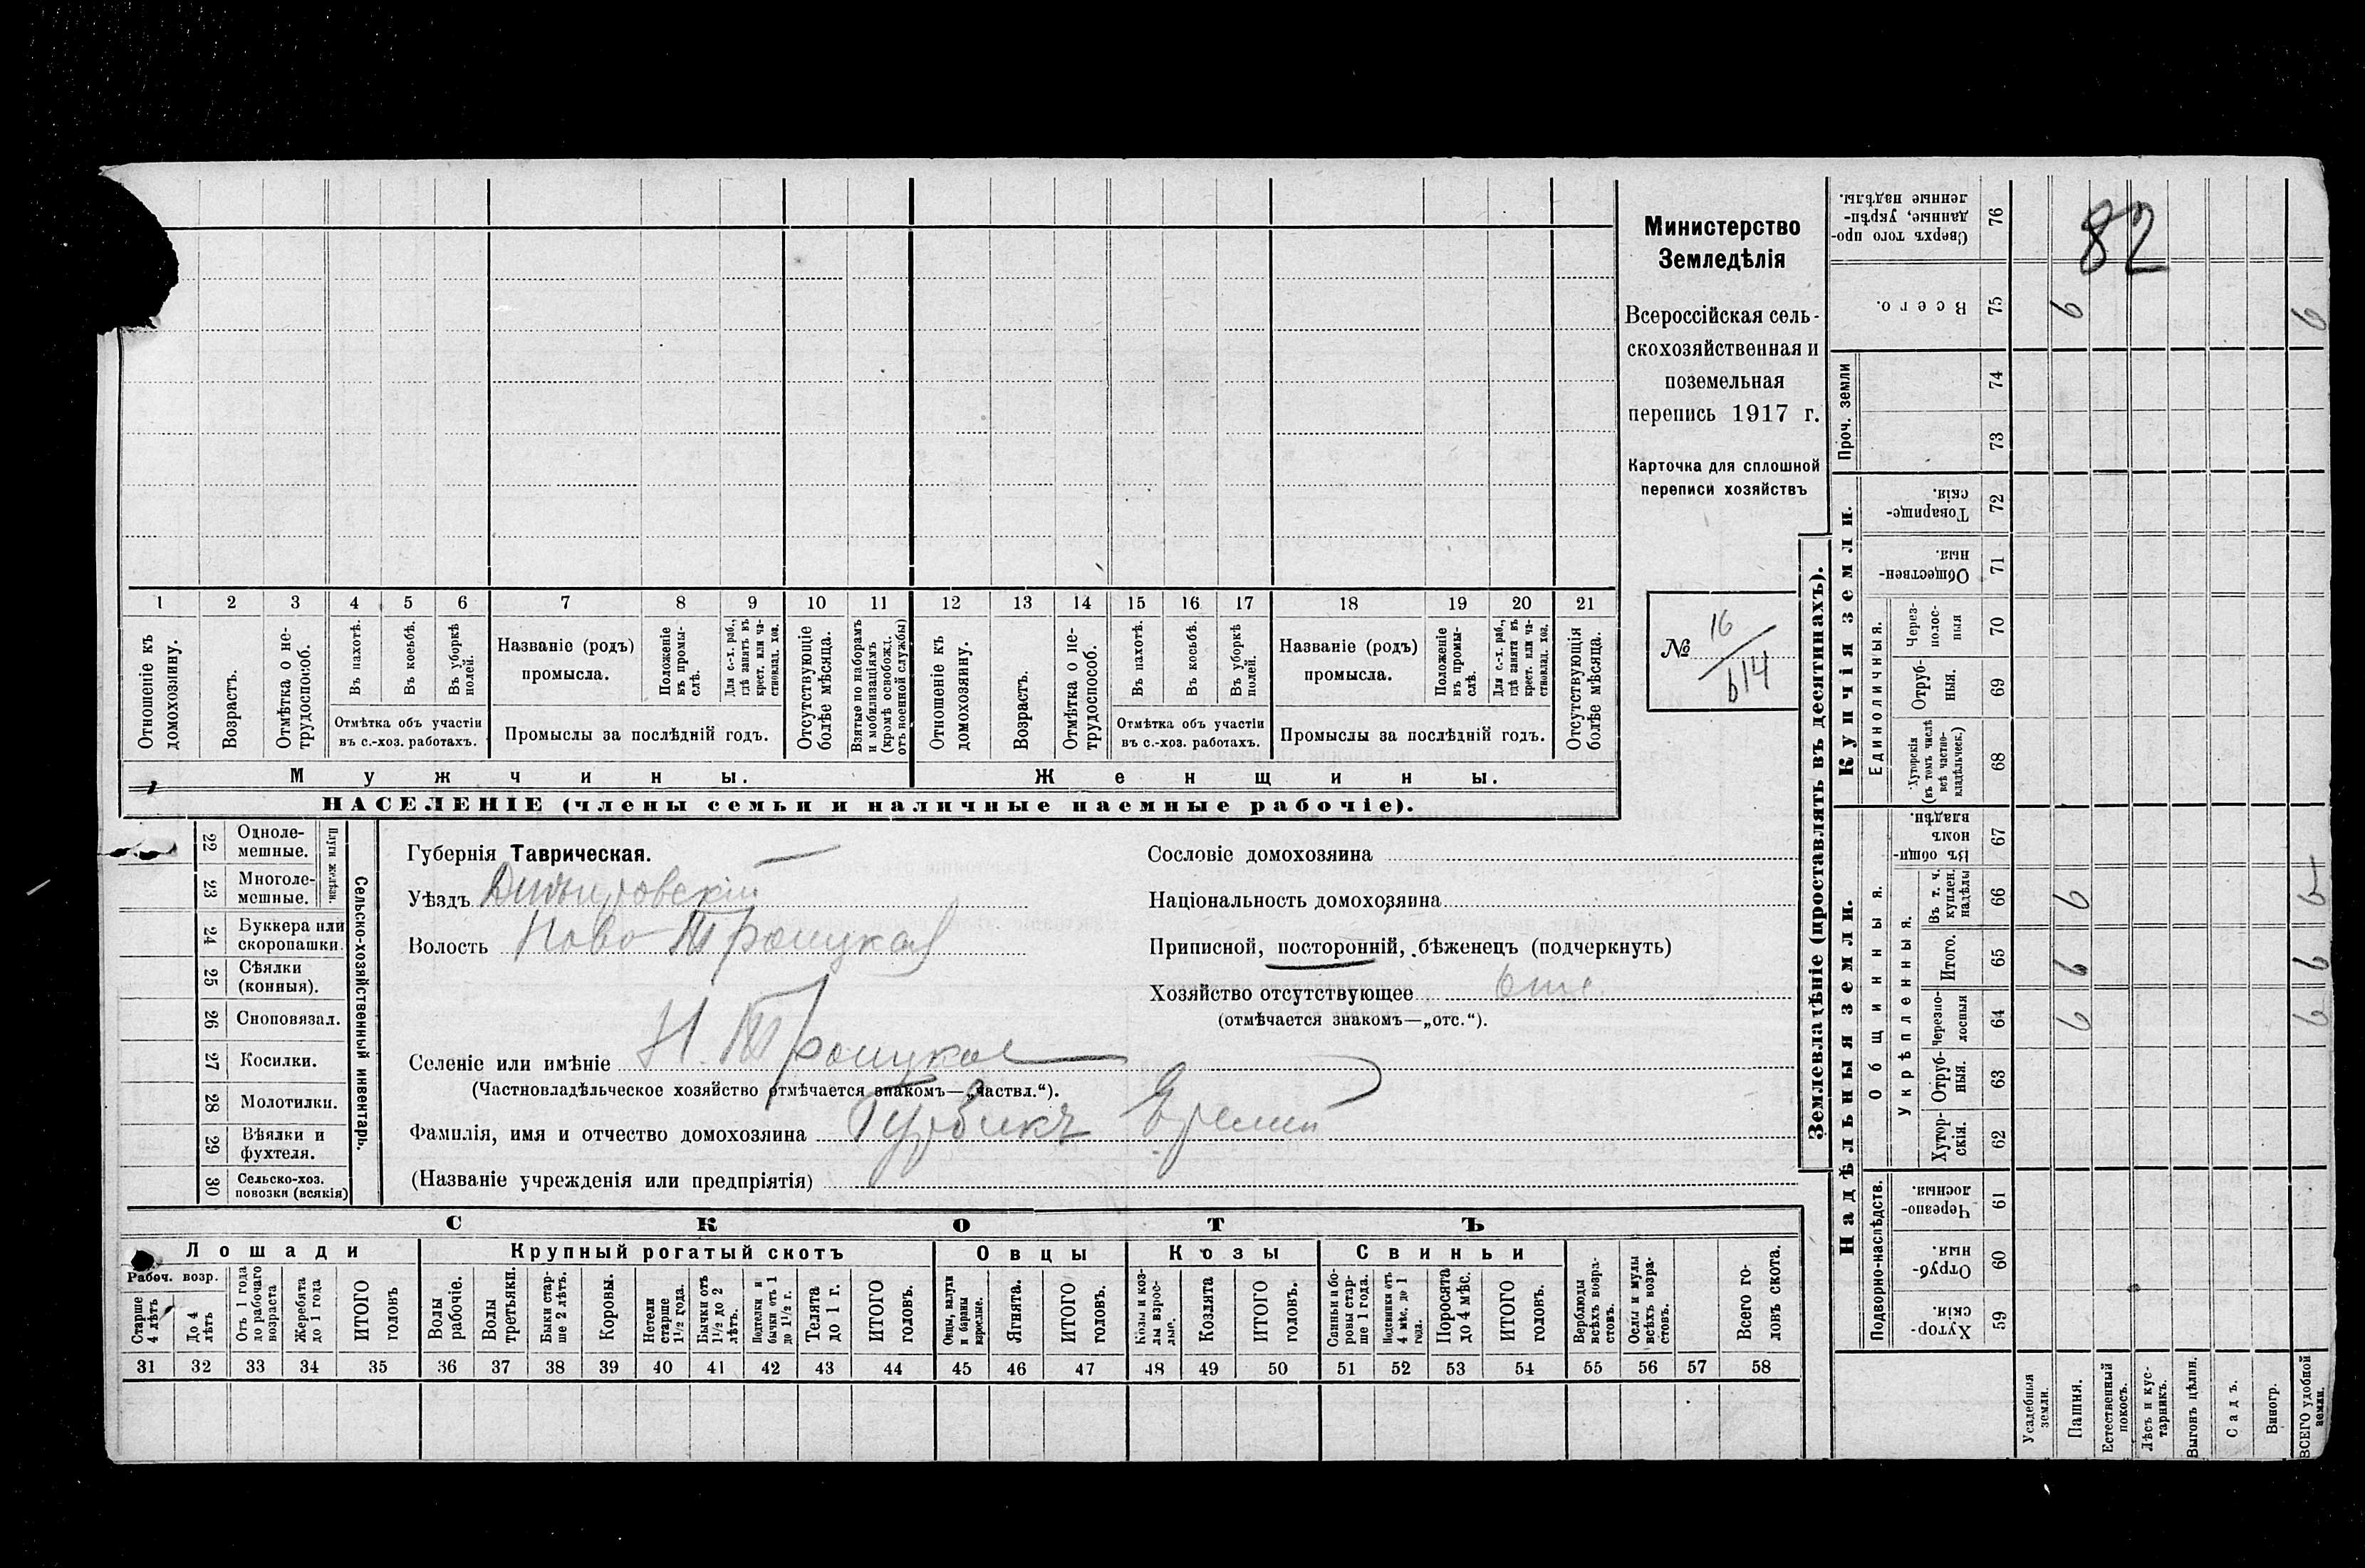 1 2 3 4 5 6 7 8 9 10 11 12 13 14 15 16 17 18 19 20 21
Отношеніе къ домохозяину.
Возрастъ.
Отмѣтка о не-
трудоспособ.
Въ пахотѣ.
Въ косьбѣ.
Въ уборкѣ
полей.
Отмѣтка объ участіи
въ с.-хоз. работахъ.
Названіе (родъ)
промысла.
Положеніе
въ промы-
слѣ.
Для с.-х. раб.,
гдѣ занятъ въ
крест. или ча-
стновлад. хоз.
Промыслы за послѣдній годъ.
Отсутствующіе
болѣе мѣсяца.
Взятые по наборамъ
и мобилизаціямъ
(кромѣ освобожд.
отъ военной службы)
Отношеніе къ
домохозяину.
Возрастъ.
Отмѣтка о не-
трудоспособ.
Въ пахотѣ.
Въ косьбѣ.
Въ уборкѣ
полей.
Отмѣтка объ участіи
въ с.-хоз. работахъ.
Названіе (родъ)
промысла.
Положеніе
въ промы-
слѣ.
Для с.-х. раб.,
гдѣ занята въ
крест. или ча-
стновлад. хоз.
Промыслы за послѣдній годъ.
Отсутствующія
болѣе мѣсяца.
Мужчины.
Женщины.
НАСЕЛЕНІЕ (члены семьи и наличные наемные рабочіе).
Министерство
Земледѣлія
Всероссійская сель-
скохозяйственная и
поземельная
перепись 1917 г.
Карточка для сплошной
переписи хозяйствъ
№ 16
614
22 Одноле-
мешные.
23 Многоле-
мешные.
Плуги желѣзн.
24 Буккера или
скоропашки.
25 Сѣялки
(конныя).
26 Сноповязал.
27 Косилки.
28 Молотилки.
29 Вѣялки и
фухтеля.
30 Сельско-хоз.
повозки (всякія)
Сельско-хозяйственный инвентарь.
Губернія Таврическая.
Уѣздъ Днѣпровскій
Волость Ново Троицкая
Селеніе или имѣніе Н. Троицкое
(Частновладѣльческое хозяйство отмѣчается знакомъ—„частвл.“).
Фамилія, имя и отчество домохозяина Гурбикъ Еремій
(Названіе учрежденія или предпріятія)
Сословіе домохозяина
Національность домохозяина
Приписной, посторонній, бѣженецъ (подчеркнуть)
Хозяйство отсутствующее отс.
(отмѣчается знакомъ—„отс.“).
СКОТЪ
Лошади
Крупный рогатый скотъ
Овцы
Козы
Свиньи
Рабоч. возр.
Старше
4 лѣтъ
До 4
лѣтъ
Отъ 1 года
до рабочаго
возраста
Жеребята
до 1 года
ИТОГО
головъ
Волы
рабочіе.
Волы
третьяки.
Быки стар-
ше 2 лѣтъ.
Коровы.
Нетели
старше
1½ года.
Бычки отъ
1½ до 2
лѣтъ.
Подтелки и
бычки отъ 1
до 1½ г.
Телята
до 1 г.
ИТОГО
головъ.
Овцы, валухи
и бараны
взрослые.
Ягнята.
ИТОГО
головъ.
Козы и коз-
лы взрос-
лые.
Козлята
ИТОГО
головъ.
Свиньи и бо-
ровы стар-
ше 1 года.
Подсвинки отъ
4 мѣс. до 1
года.
Поросята
до 4 мѣс.
ИТОГО
головъ.
Верблюды
всѣхъ возра-
стовъ.
Ослы и мулы
всѣхъ возра-
стовъ.
Всего го-
ловъ скота.
31 32 33 34 35 36 37 38 39 40 41 42 43 44 45 46 47 48 49 50 51 52 53 54 55 56 57 58
Землевладѣніе (проставлять въ десятинахъ).
Надѣльныя земли.
Купчія земли.
Проч. земли
Подворно-наслѣдств.
Общинныя.
Укрѣпленныя.
Единоличныя.
Сверхъ того про-
данные, укрѣп-
ленные надѣлы.
76
82
Всего.
75 9 9
74
73
Товарище-
скія.
72
Обществен-
ныя.
71
Через-
полос-
ныя
70
Отруб-
ныя.
69
Хуторскія
(въ томъ числѣ
всѣ частно-
владѣльческ.)
68
Въ общин-
номъ
владѣн.
67
Въ т. ч.
куплен.
надѣлы
66 9 9
Итого.
65 9 9
Черезпо-
лосныя
64 9 9
Отруб-
ныя.
63
Хутор-
скія.
62
Черезпо-
лосныя.
61
Отруб-
ныя.
60
Хутор-
скія.
59
Усадебныя
земли.
Пашня.
Естественный
покосъ.
Лѣсъ и кус-
тарникъ.
Выгонъ цѣлин.
Садъ.
Виногр.
ВСЕГО удобной
земли.